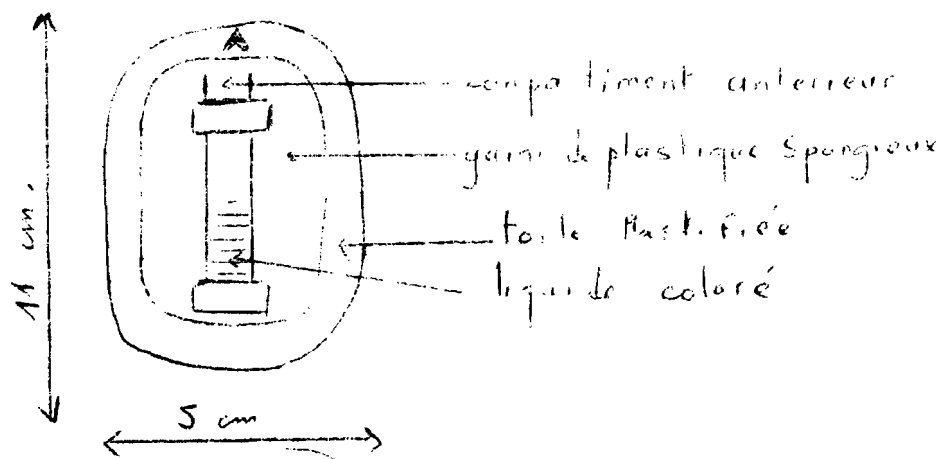 compartiment anterieur
garni de plastique spongieux
toile plastifiée
liquide coloré
11 cm.
5 cm